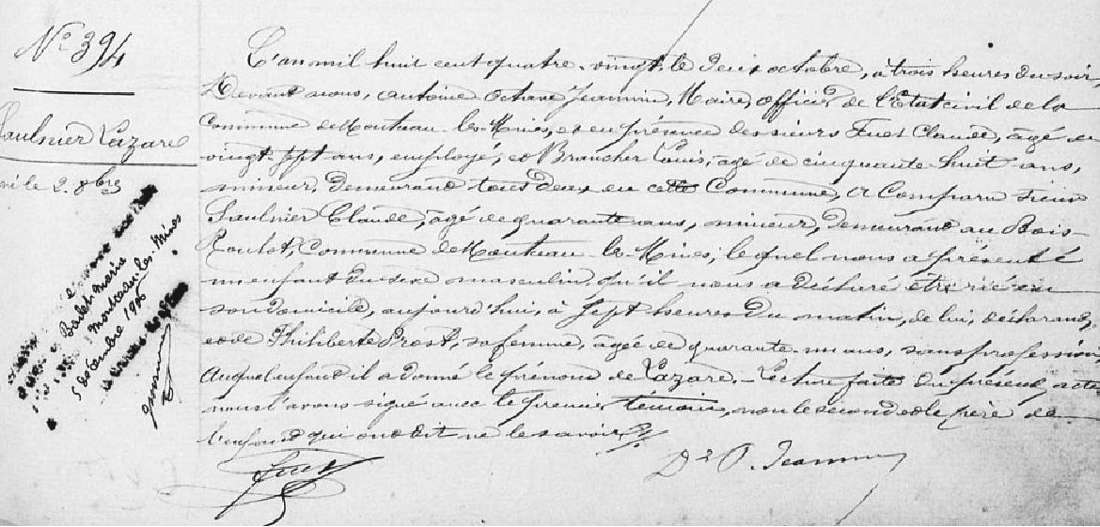 N° 394
Saulnier Lazare
né le 2. 8bre
Barlet Marie
Montceau-les-Mines
L'an mil huit cent quatre-vingt, le deux octobre, à trois heures du soir,
Devant nous, Antoine Octave Jeannin, Maire, officier de l'Etat civil de la
Commune de Montceau-les-Mines, et en présence des sieurs Fuet Claude, âgé de
vingt-sept ans, employé, et Brancher Louis, âgé de cinquante huit ans,
mineur, demeurant tous deux en cette Commune, a Comparu sieur
Saulnier Claude, âgé de quarante ans, mineur, demeurant au Bois-
Roulot, Commune de Montceau-les-Mines; lequel nous a présenté
un enfant du sexe masculin, qu'il nous a déclaré être né en
son domicile, aujourd'hui, à sept heures du matin, de lui, déclarant,
et de Philiberte Prost, sa femme, âgée de quarante-un ans, sans profession,
auquel enfant il a donné le prénom de Lazare. - Lecture faite du présent acte
nous l'avons signé avec le premier témoin, non le second et le père de
l'enfant qui ont dit ne le savoir.
Fuet
Dr O. Jeannin